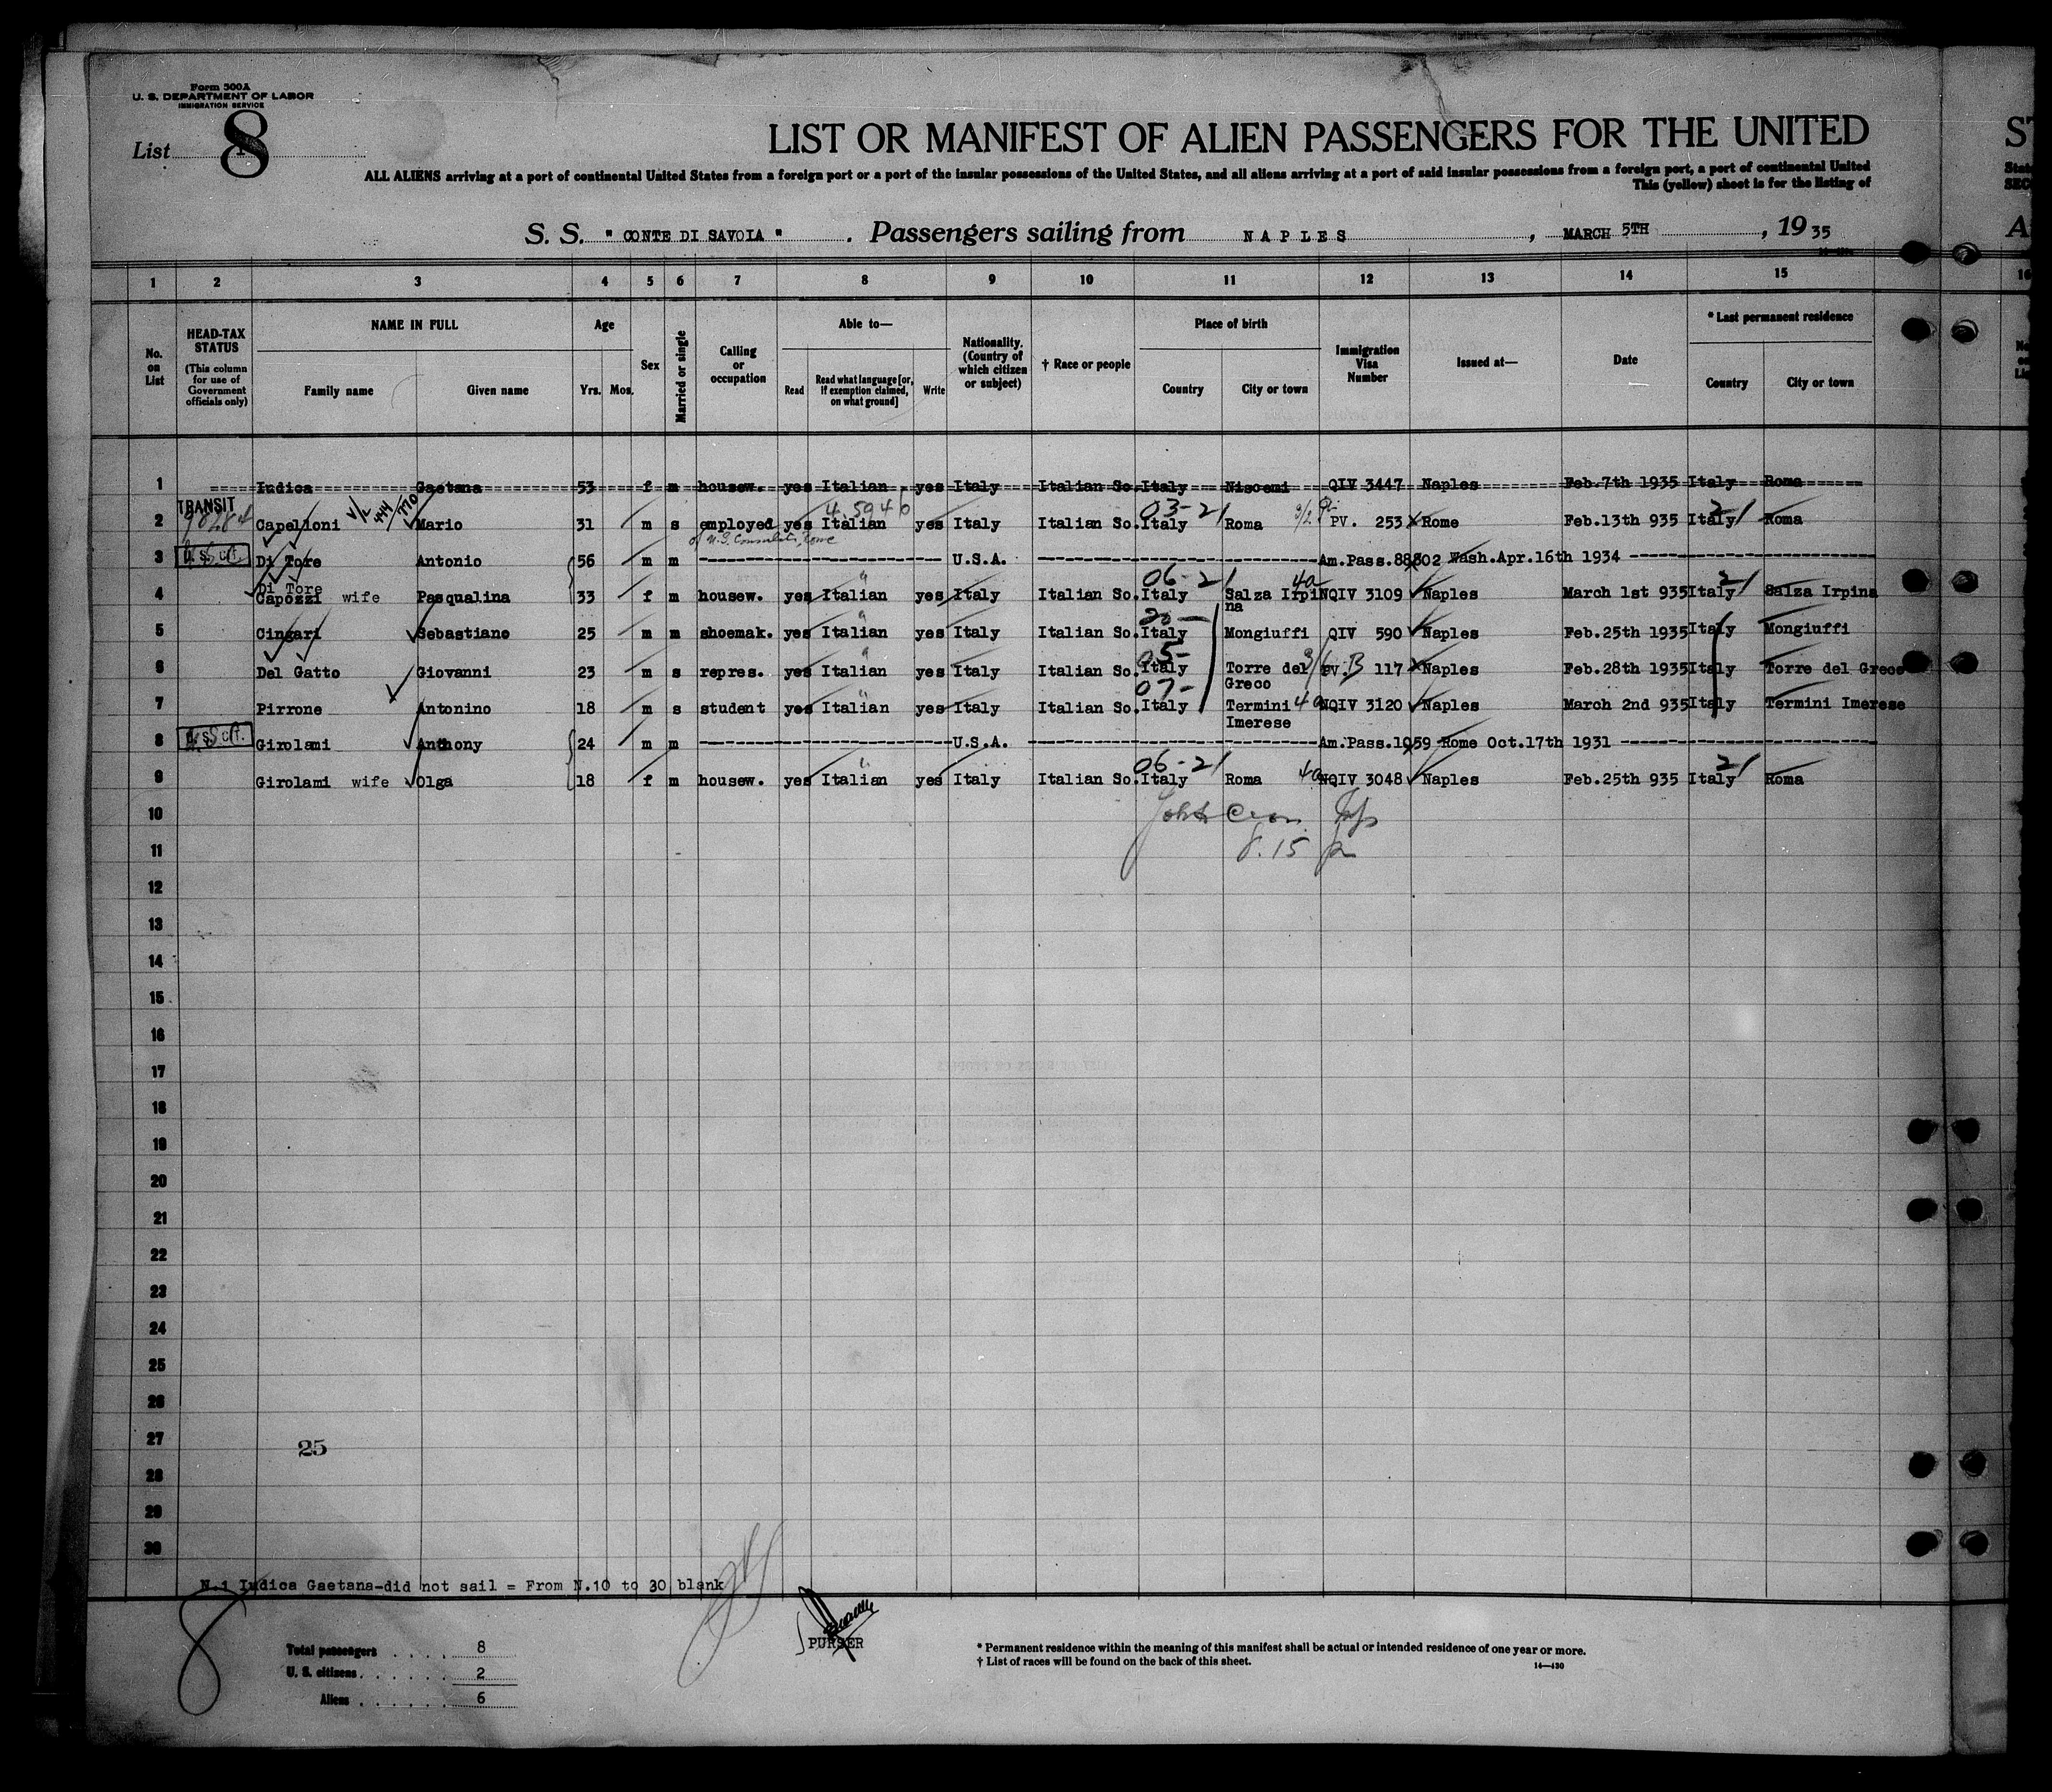 Form 500A
U. S. DEPARTMENT OF LABOR
IMMIGRATION SERVICE
List 8
LIST OR MANIFEST OF ALIEN PASSENGERS FOR THE UNITED
ALL ALIENS arriving at a port of continental United States from a foreign port or a port of the insular possessions of the United States, and all aliens arriving at a port of said insular possessions from a foreign port, a port of continental United
This (yellow) sheet is for the listing of
S. S. " CONTE DI SAVOIA " . Passengers sailing from NAPLES , MARCH 5TH , 19 35
1 2 3 4 5 6 7 8 9 10 11 12 13 14 15 16
No. on List
HEAD-TAX STATUS (This column for use of Government officials only)
NAME IN FULL
Family name Given name
Age
Yrs. Mos.
Sex
Married or single
Calling or occupation
Able to—
Read Read what language [or, if exemption claimed, on what ground] Write
Nationality. (Country of which citizen or subject)
† Race or people
Place of birth
Country City or town
Immigration Visa Number
Issued at—
Date
* Last permanent residence
Country City or town
1 Indica Gaetana 53 f m housew. yes Italian yes Italy Italian So. Italy Niscemi QIV 3447 Naples Feb.7th 1935 Italy Roma
TRANSIT 4.5940 03-21
2 Capelloni Mario 31 m s employed yes Italian yes Italy Italian So. Italy Roma PV. 253 Rome Feb.13th 935 Italy Roma
of U.S. Consulate, Rome
3 U.S.cit. Di Tore Antonio 56 m m U.S.A. Am.Pass.88802 Wash.Apr.16th 1934
Di Tore 06-21 4a 21
4 Capozzi wife Pasqualina 33 f m housew. yes Italian yes Italy Italian So. Italy Salza Irpina NQIV 3109 Naples March 1st 935 Italy Salza Irpina
20-
5 Cingari Sebastiano 25 m m shoemak. yes Italian yes Italy Italian So. Italy Mongiuffi QIV 590 Naples Feb.25th 1935 Italy Mongiuffi
05-
6 Del Gatto Giovanni 23 m s repres. yes Italian yes Italy Italian So. Italy Torre del Greco PV. B 117 Naples Feb.28th 1935 Italy Torre del Greco
07-
7 Pirrone Antonino 18 m s student yes Italian yes Italy Italian So. Italy Termini Imerese 4a NQIV 3120 Naples March 2nd 935 Italy Termini Imerese
8 U.S.cit. Girolami Anthony 24 m m U.S.A. Am.Pass.1059 Rome Oct.17th 1931
06-21 21
9 Girolami wife Olga 18 f m housew. yes Italian yes Italy Italian So. Italy Roma 4a NQIV 3048 Naples Feb.25th 935 Italy Roma
10
11 8.15
12
13
14
15
16
17
18
19
20
21
22
23
24
25
26
27 25
28
29
30
N.1 Indica Gaetana-did not sail = From N.10 to 30 blank
8
PURSER
Total passengers . . . . 8
U. S. citizens . . . . . . 2
Aliens . . . . . . 6
* Permanent residence within the meaning of this manifest shall be actual or intended residence of one year or more.
† List of races will be found on the back of this sheet.
14—430